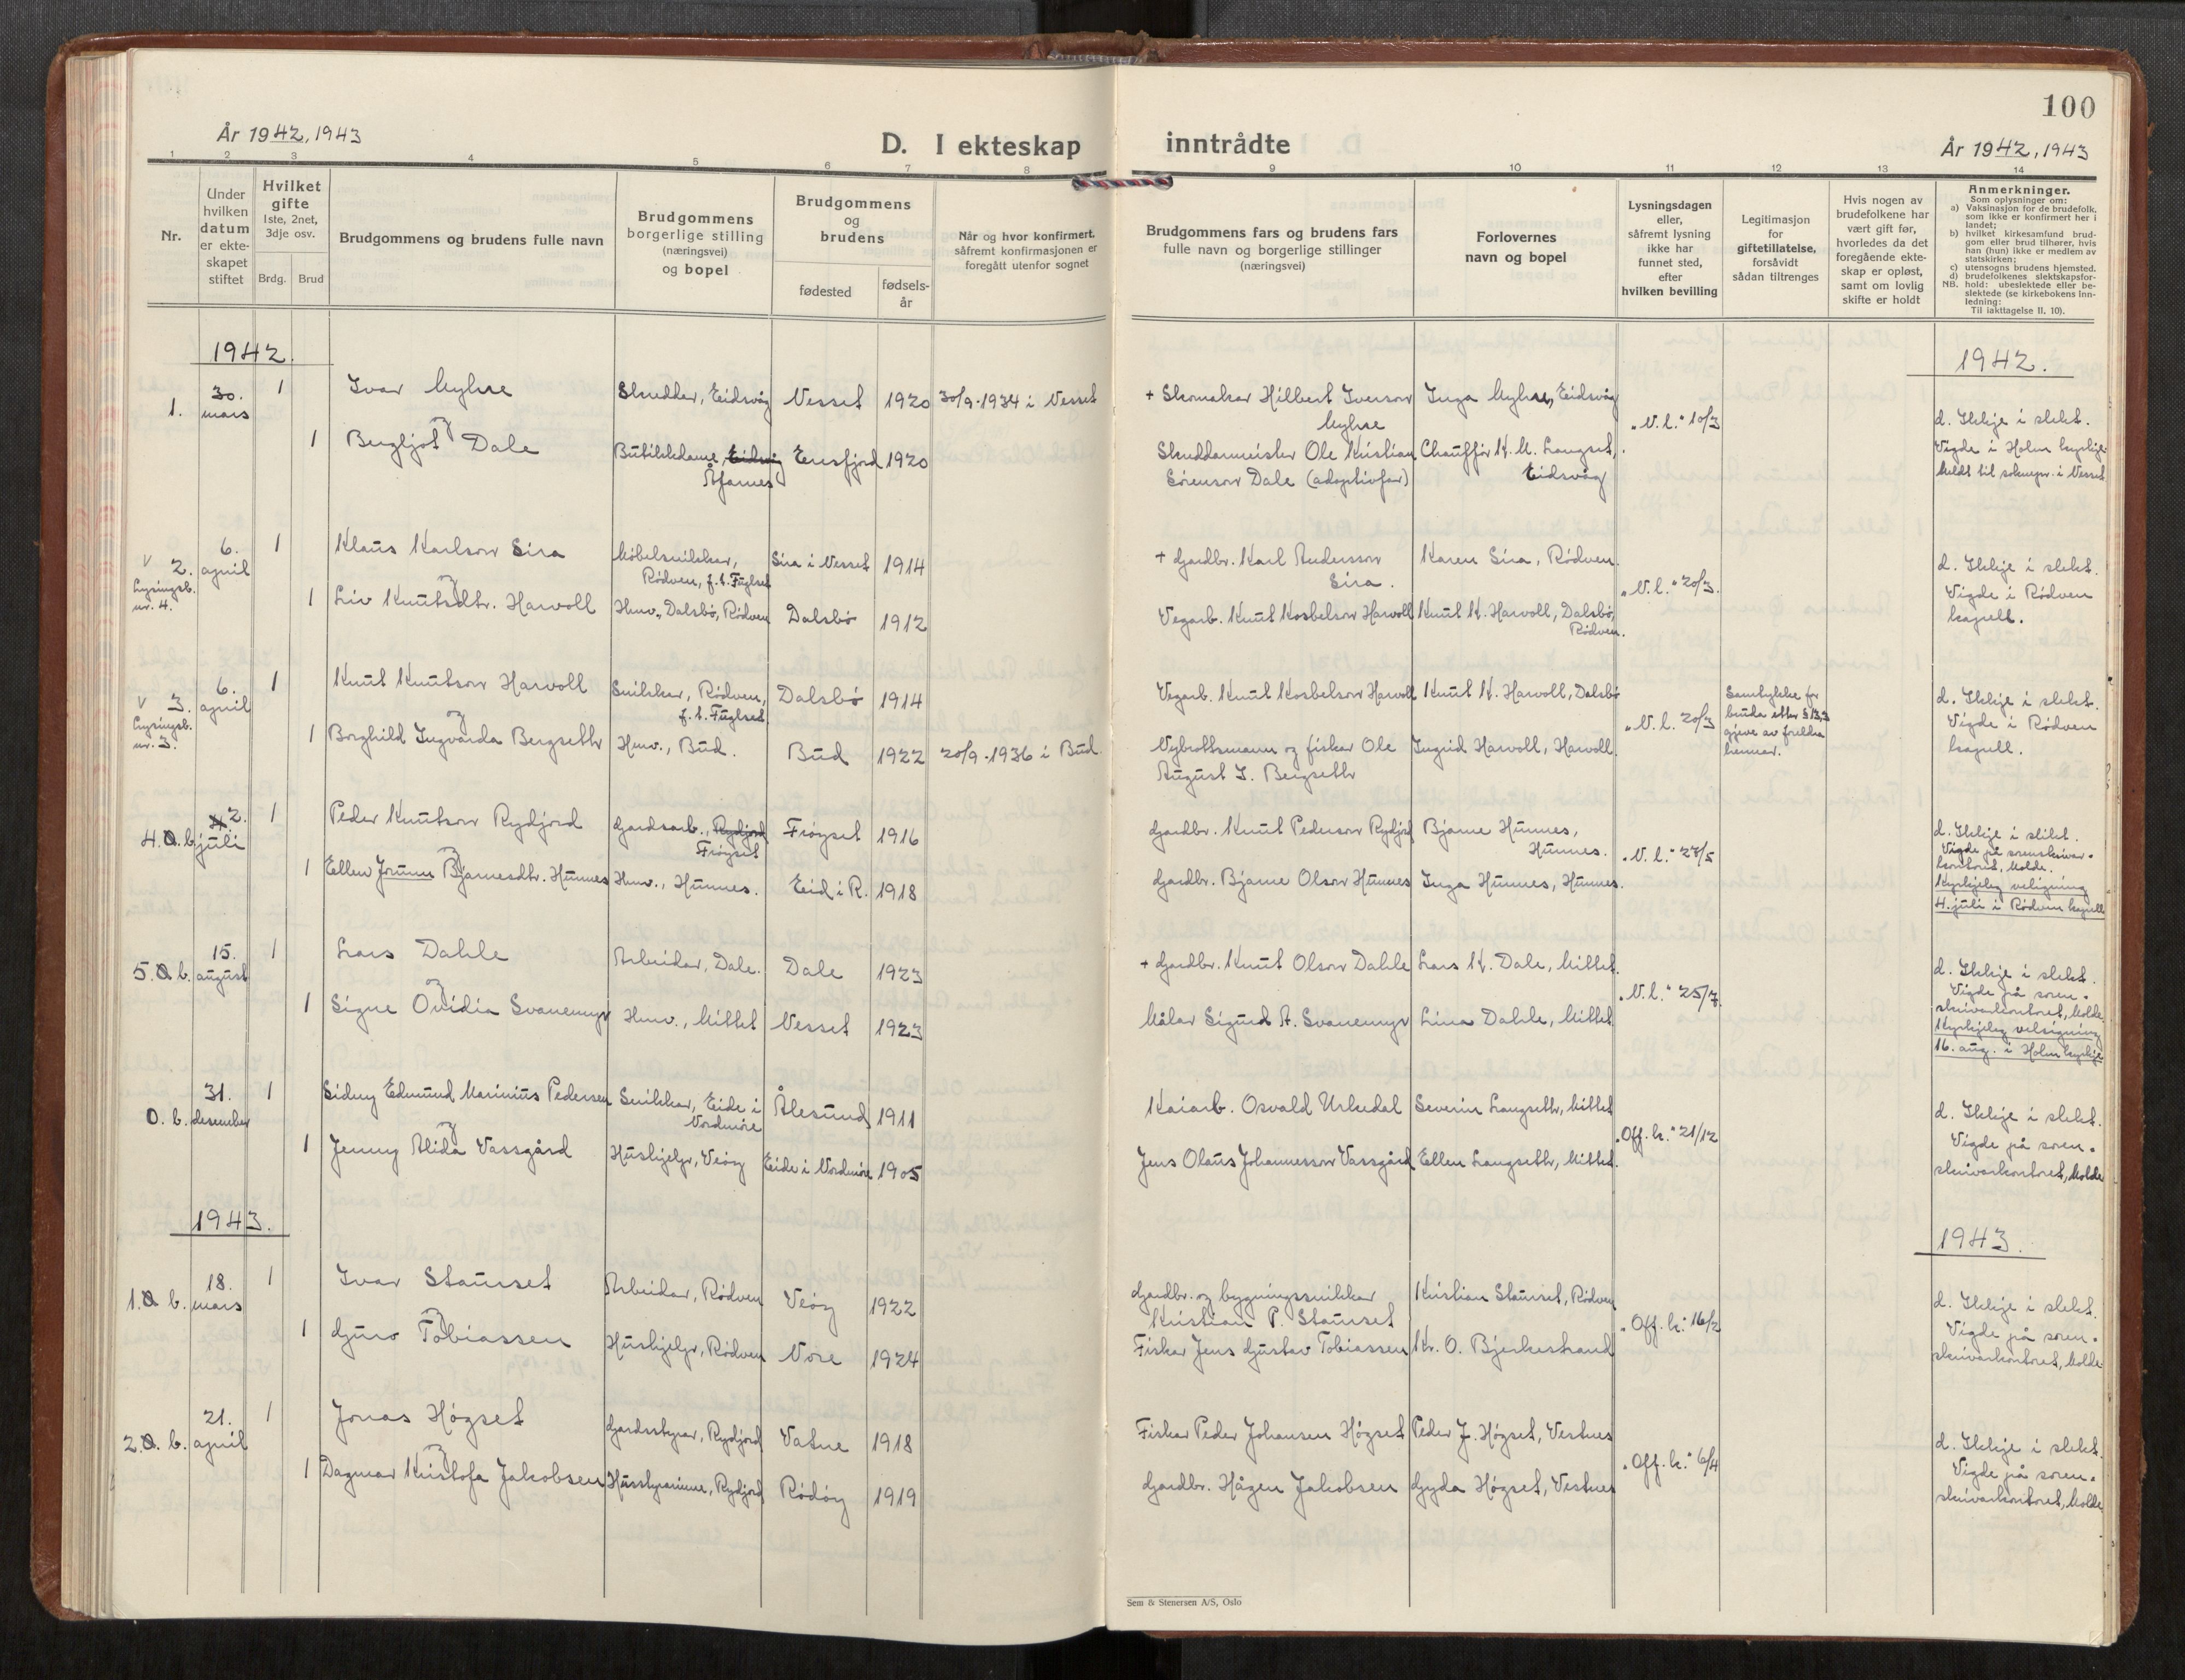 100
År 1942, 1943
D. I ekteskap
inntrådte
År 1942, 1943
1
2
3
4
5
6
7
8
9
10
11
12
13
14
Nr.
Under
hvilken
datum
er ekte-
skapet
stiftet
Hvilket
gifte
1ste, 2net,
3dje osv.
Brdg.
Brud
Brudgommens og brudens fulle navn
Brudgommens
borgerlige stilling
(næringsvei)
og bopel
Brudgommens
og
brudens
fødested
fødsels-
år
Når og hvor konfirmert.
såfremt konfirmasjonen er
foregått utenfor sognet
Brudgommens fars og brudens fars
fulle navn og borgerlige stillinger
(næringsvei)
Forlovernes
navn og bopel
Lysningsdagen
eller,
såfremt lysning
ikke har
funnet sted,
efter
hvilken bevilling
Legitimasjon
for
giftetillatelse,
forsåvidt
sådan tiltrenges
Hvis nogen av
brudefolkene har
vært gift før,
hvorledes da det
foregående ekte-
skap er opløst,
samt om lovlig
skifte er holdt
Anmerkninger.
Som oplysninger om:
a) Vaksinasjon for de brudefolk,
som ikke er konfirmert her i
landet;
b) hvilket kirkesamfund brud-
gom eller brud tilhører, hvis
han (hun) ikke er medlem av
statskirken;
c) utensogns brudens hjemsted.
d) brudefolkenes slektskapsfor-
NB. hold: ubeslektede eller be-
slektede (se kirkebokens inn-
ledning:
Til iakttagelse II. 10).
1942.
1942.
1. 30. mars 1 Ivar Myhre Skreddar, Eidsvåg Nesset 1920 30/9-1934 i Nesset + Skomakar Hilbert Iverson Inga Myhre, Eidsvåg
Myhre "N. l." 10/3 d. Ikkje i slekt.
1 Bergljot Dale Butikkdame, Eidsvåg Eresfjord 1920 Skreddarmeister Ole Kristian Chauffør K. M. Langset, Vigde i Holm kyrkje
Åfarnes Sørenson Dale (adoptivfar) Eidsvåg heldt til soknepr. i Nesset
v 2. 6. april 1 Klaus Karlson Sira Møbelsnikkar, Sira i Nesset 1914 + Gardbr. Karl Anderson Karen Sira, Rødven. d. Ikkje i slekt.
Lysingsb. Rødven, f. t. Fuglset Sira. "N. l." 20/3. Vigde i Rødven
nr. 4. 1 Liv Knutsdtr. Harvoll Husv., Dalsbø, Rødven Dalsbø 1912 Vegarb. Knut Kosbelson Harvoll Knut K. Harvoll, Dalsbø, kapell.
Rødven.
v 3. 6. april 1 Knut Knutson Harvoll Snikkar, Rødven, Dalsbø 1914 Vegarb. Knut Kosbelson Harvoll Knut K. Harvoll, Dalsbø Samtykke for d. Ikkje i slekt.
Lysingsb. f. t. Fuglset. "N. l." 20/3 bruda etter § 13,2 Vigde i Rødven
nr. 3. 1 Borghild Ingvarda Bergseth Husv., Bud. Bud 1922 20/9-1936 i Bud. Nybrottsmann og fiskar Ole Ingrid Harvoll, Harvoll. gjeve av foreldra kapell.
August I. Bergseth hennar.
4. O. b. 2. juli 1 Peder Knutson Rydjord Gardsarb., Rydjord Frøyset 1916 Gardbr. Knut Pederson Rydjord Bjarne Hunnes, d. Ikkje i slekt.
Frøyset Hunnes. "N. l." 27/5 Vigde på sorenskrivar-
kontoret, Molde.
1 Ellen Jorunn Bjarnesdtr. Hunnes Husv., Hunnes. Eid i R. 1918 Gardbr. Bjarne Olson Hunnes Inga Hunnes, Hunnes. Kyrkjeleg velsigning
4. juli i Rødven kapell
5. O. b. 15. august 1 Lars Dahle Arbeidar, Dale. Dale 1923 + Gardbr. Knut Olson Dahle Lars K. Dale, Mittet. d. Ikkje i slekt.
"N. l." 25/7. Vigde på soren-
1 Signe Ovidia Svanemyr Husv., Mittet Nesset 1923 Målar Sigurd A. Svanemyr Lina Dahle, Mittet skrivarkontoret, Molde.
Kyrkjeleg velsigning
16. aug. i Holm kyrkje
O. b. 31. desember 1 Sidny Edmund Marinius Pedersen Snikkar, Eide i Ålesund 1911 Kaiarb. Osvald Urkedal Severin Langseth, Mittet d. Ikkje i slekt.
Nordmøre "Off. k." 21/12 Vigde på soren-
1 Jenny Alida Vassgård Hushjelp, Veøy Eide i Nordmøre 1905 Jens Olaus Johannesson Vassgård Ellen Langseth, Mittet. skrivarkontoret, Molde
1943.
1943.
1. O. b. 18. mars 1 Ivar Staurset Arbeidar, Rødven Veøy 1922 Gardbr. og bygningssnikkar Kristian Staurset, Rødven d. Ikkje i slekt.
Kristian P. Staurset "Off. k." 16/2 Vigde på soren-
1 Guro Tobiassen Hushjelp, Rødven Nore 1924 Fiskar Jens Gustav Tobiassen Kr. O. Bjerkestrand skrivarkontoret, Molde
2. O. b. 21. april 1 Jonas Høgset Gardsstyrar, Rydjord Vatne 1918 Fiskar Peder Johansen Høgset Peder J. Høgset, Vestnes d. Ikkje i slekt.
"Off. k." 6/4 Vigde på soren-
1 Dagmar Kristofa Jakobsen Husstyrarinne, Rydjord Rødøy 1919 Gardbr. Hågen Jakobsen Gyda Høgset, Vestnes skrivarkontoret, Molde
Sem & Stenersen A/S, Oslo